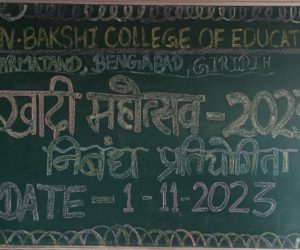 N. BAKSHI COLLEGE OF EDUCAT
ARMATAND, BENGABAD, GIRIDIH
खादी महोत्सव - 202
निबंध प्रतियोगिता
DATE - 1-11-2023